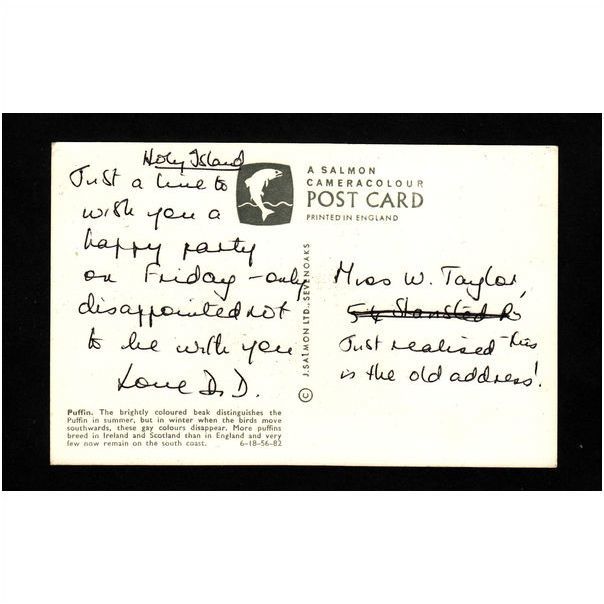 Holy Island
Just a line to
wish you a
happy party
on Friday - only
disappointed not
to be with you
Love D.D.
Puffin. The brightly coloured beak distinguishes the
Puffin in summer, but in winter when the birds move
southwards, these gay colours disappear. More puffins
breed in Ireland and Scotland than in England and very
few now remain on the south coast. 6-18-56-82
© J. SALMON LTD., SEVENOAKS
A SALMON
CAMERACOLOUR
POST CARD
PRINTED IN ENGLAND
Miss W. Taylor,
Stansted Rd
Just realised - this
is the old address!